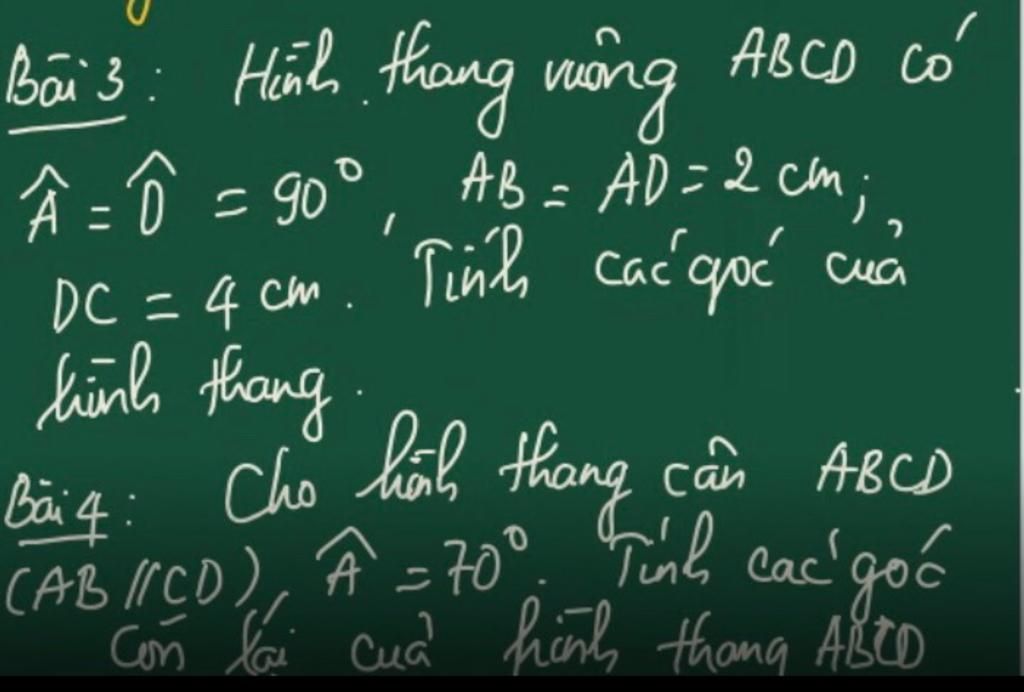 Bài 3: Hình thang vuông ABCD có
Â = D̂ = 90°, AB = AD = 2 cm;
DC = 4 cm. Tính các góc của
hình thang.
Bài 4: Cho hình thang cân ABCD
(AB // CD), Â = 70°. Tính các góc
còn lại của hình thang ABCD